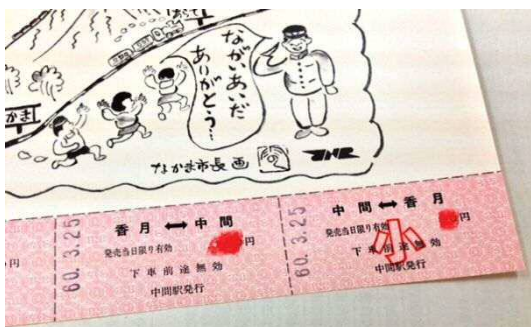 ながいあいだ
ありがとう…
かま
なかま市長 画
JNR
円
60.3.25
香月 ↔ 中間
発売当日限り有効
円
下車前途無効
中間駅発行
60.3.25
中間 ↔ 香月
発売当日限り有効
円
小
下車前途無効
中間駅発行